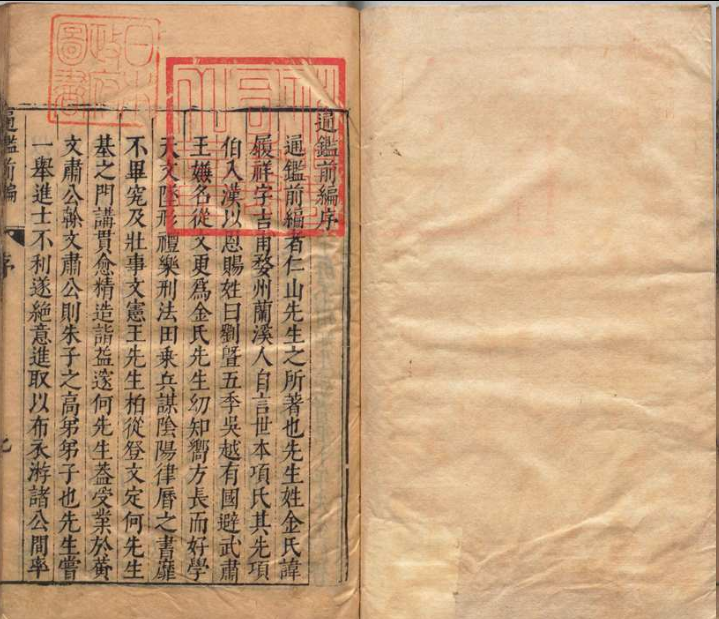 通鑑前編序
通鑑前編者仁山先生之所著也先生姓金氏諱
履祥字吉甫婺州蘭溪人自言世本項氏其先項
伯入漢以恩賜姓曰劉曁五季吳越有國避武肅
王嫌名從文更為金氏先生幼知嚮方長而好學
天文墜形禮樂刑法田乘兵謀陰陽律曆之書靡
不畢究及壯事文憲王先生柏從登文定何先生
基之門講貫愈精造詣益邃何先生蓋受業於黃
文肅公榦文肅公則朱子之高弟弟子也先生嘗
一舉進士不利遂絕意進取以布衣游諸公間率
通鑑前編
序
圖書